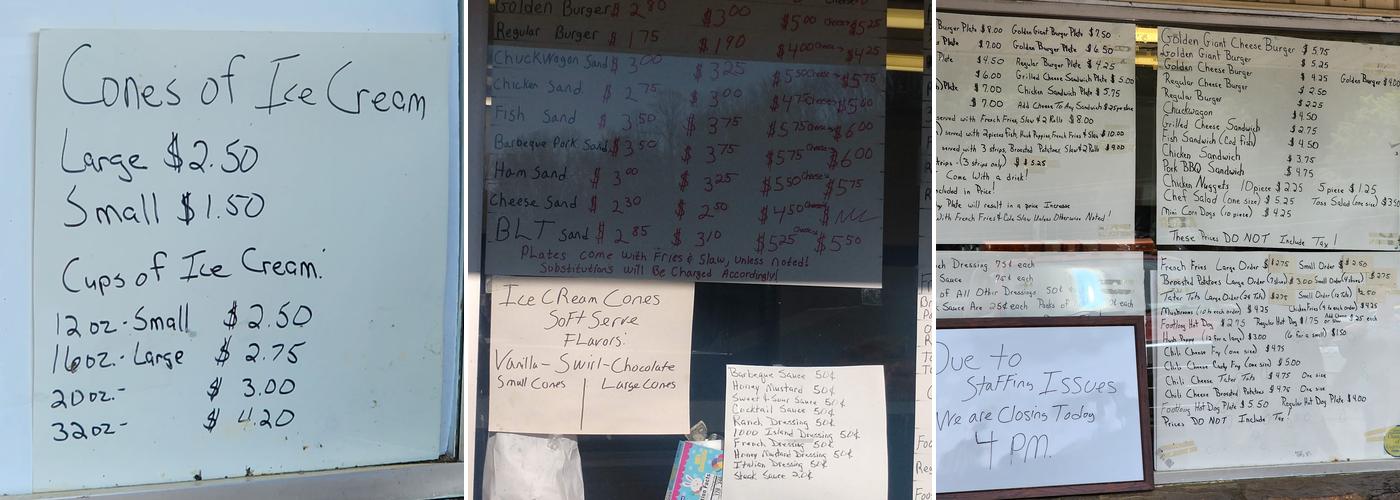 Cones of Ice Cream
Large $2.50
Small $1.50
Cups of Ice Cream:
12oz.-Small $2.50
16oz.-Large $2.75
20oz.- $3.00
32oz- $4.20
Golden Burger $2.80 $3.00 $5.00 Cheese $5.25
Regular Burger $1.75 $1.90 $4.00 Cheese $4.25
ChuckWagon Sand $3.00 $3.25 $5.50 Cheese $5.75
Chicken Sand $2.75 $3.00 $4.75 Cheese $5.00
Fish Sand $3.50 $3.75 $5.75 Cheese $6.00
Barbeque Pork Sand $3.50 $3.75 $5.75 Cheese $6.00
Ham Sand $3.00 $3.25 $5.50 Cheese $5.75
Cheese Sand $2.30 $2.50 $4.50 Cheese
BLT Sand $2.85 $3.10 $5.25 Cheese $5.50
Plates come with Fries & Slaw, unless noted!
Substitutions will Be Charged Accordingly!
Ice CReam Cones
Soft Serve
FLavors:
Vanilla- Swirl-Chocolate
Small Cones Large Cones
Barbeque Sauce 50¢
Honey Mustard 50¢
Sweet & Sour Sauce 50¢
Cocktail Sauce 50¢
Ranch Dressing 50¢
1000 Island Dressing 50¢
French Dressing 50¢
Honey Mustard Dressing 50¢
Italian Dressing 50¢
Steak Sauce 20¢
Burger Plate $8.00 Golden Giant Burger Plate $7.50
Plate $7.00 Golden Burger Plate $6.50
Plate $4.50 Regular Burger Plate $4.25
$6.00 Grilled Cheese Sandwich Plate $5.00
Plate $7.00 Chicken Sandwich Plate $5.75
$7.00 Add Cheese To Any Sandwich
served with French Fries, Slaw & 2 Rolls $8.00
served with 2 pieces fish, Hush Puppies, French Fries & Slaw $10.00
served with 3 strips, Broasted Potatoes, Slaw & 2 Rolls $9.00
(3 strips only) $5.25
Come With a drink!
included in Price!
Plate will result in a price Increase
With French Fries & Cole Slaw Unless Otherwise Noted!
Dressing 75¢ each
Sauce 75¢ each
of All Other Dressings 50¢
Sauce Are 25¢ each each
Due to
Staffing Issues
We are Closing Today
4 PM.
Golden Giant Cheese Burger $5.75
Golden Giant Burger $5.25
Golden Cheese Burger $4.25 Golden Burger
Regular Cheese Burger $2.50
Regular Burger $2.25
Chuckwagon $4.50
Grilled Cheese Sandwich $2.75
Fish Sandwich (Cod fish) $4.50
Chicken Sandwich $3.75
Pork BBQ Sandwich $4.75
Chicken Nuggets 10 piece $2.25 5 piece $1.25
Chef Salad (one size) $5.25 Toss Salad (one size) $3.50
Mini Corn Dogs (10 piece) $4.25
These Prices DO NOT Include Tax!
French Fries Large Order $2.75 Small Order $2.50
Broasted Potatoes Large Order $3.00 Small Order $2.75
Tater Tots Large Order $2.75 Small Order
Mushrooms (10 to each order) $4.25
Footlong Hot Dog $2.75 Regular Hot Dog $1.75
Hush Puppy (12 for a large) $3.00 (6 for a small) $1.50
Chili Cheese Fry (one size) $4.75
Chili Cheese Curly Fry (one size) $5.00
Chili Cheese Tater Tots $4.75 One size
Chili Cheese Broasted Potatoes $4.75 One size
Footlong Hot Dog Plate $5.50 Regular Hot Dog Plate $4.00
Prices DO NOT Include Tax!